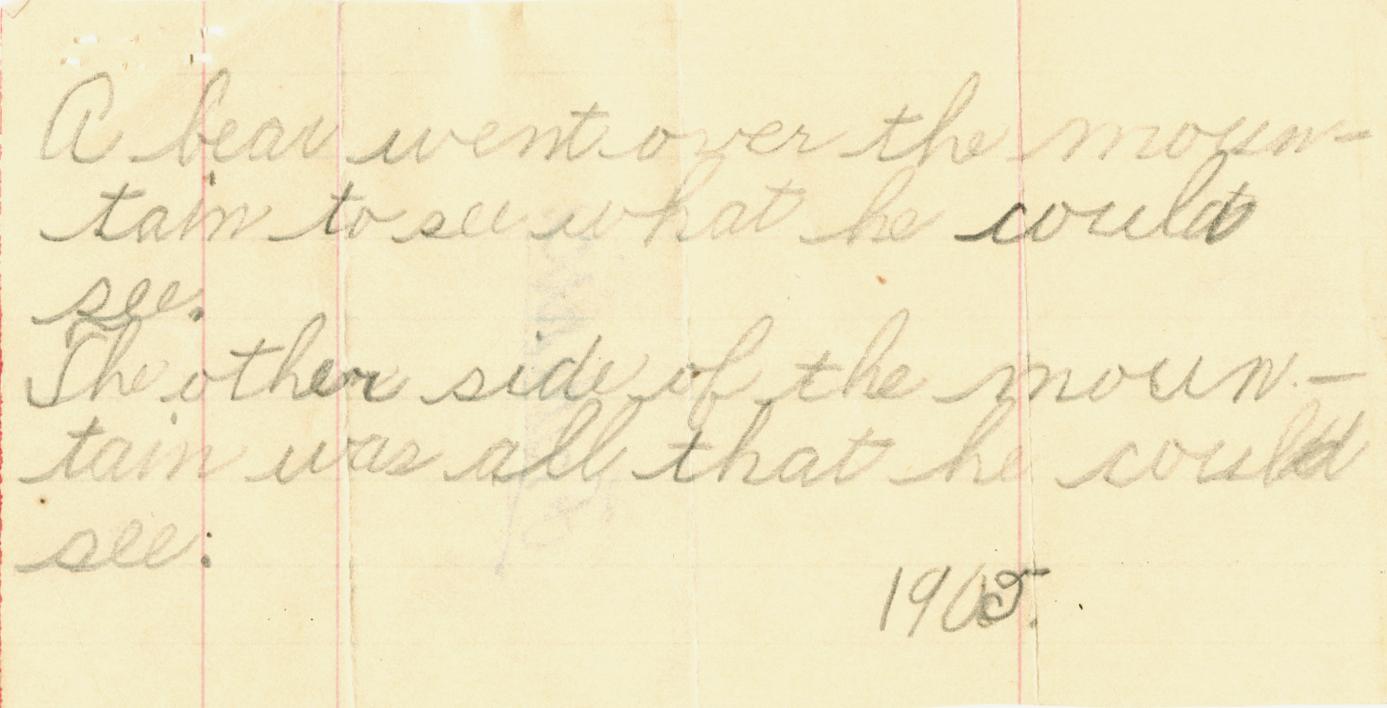 A bear went over the moun-
tain to see what he could
see.
The other side of the moun-
tain was all that he could
see.
1905.